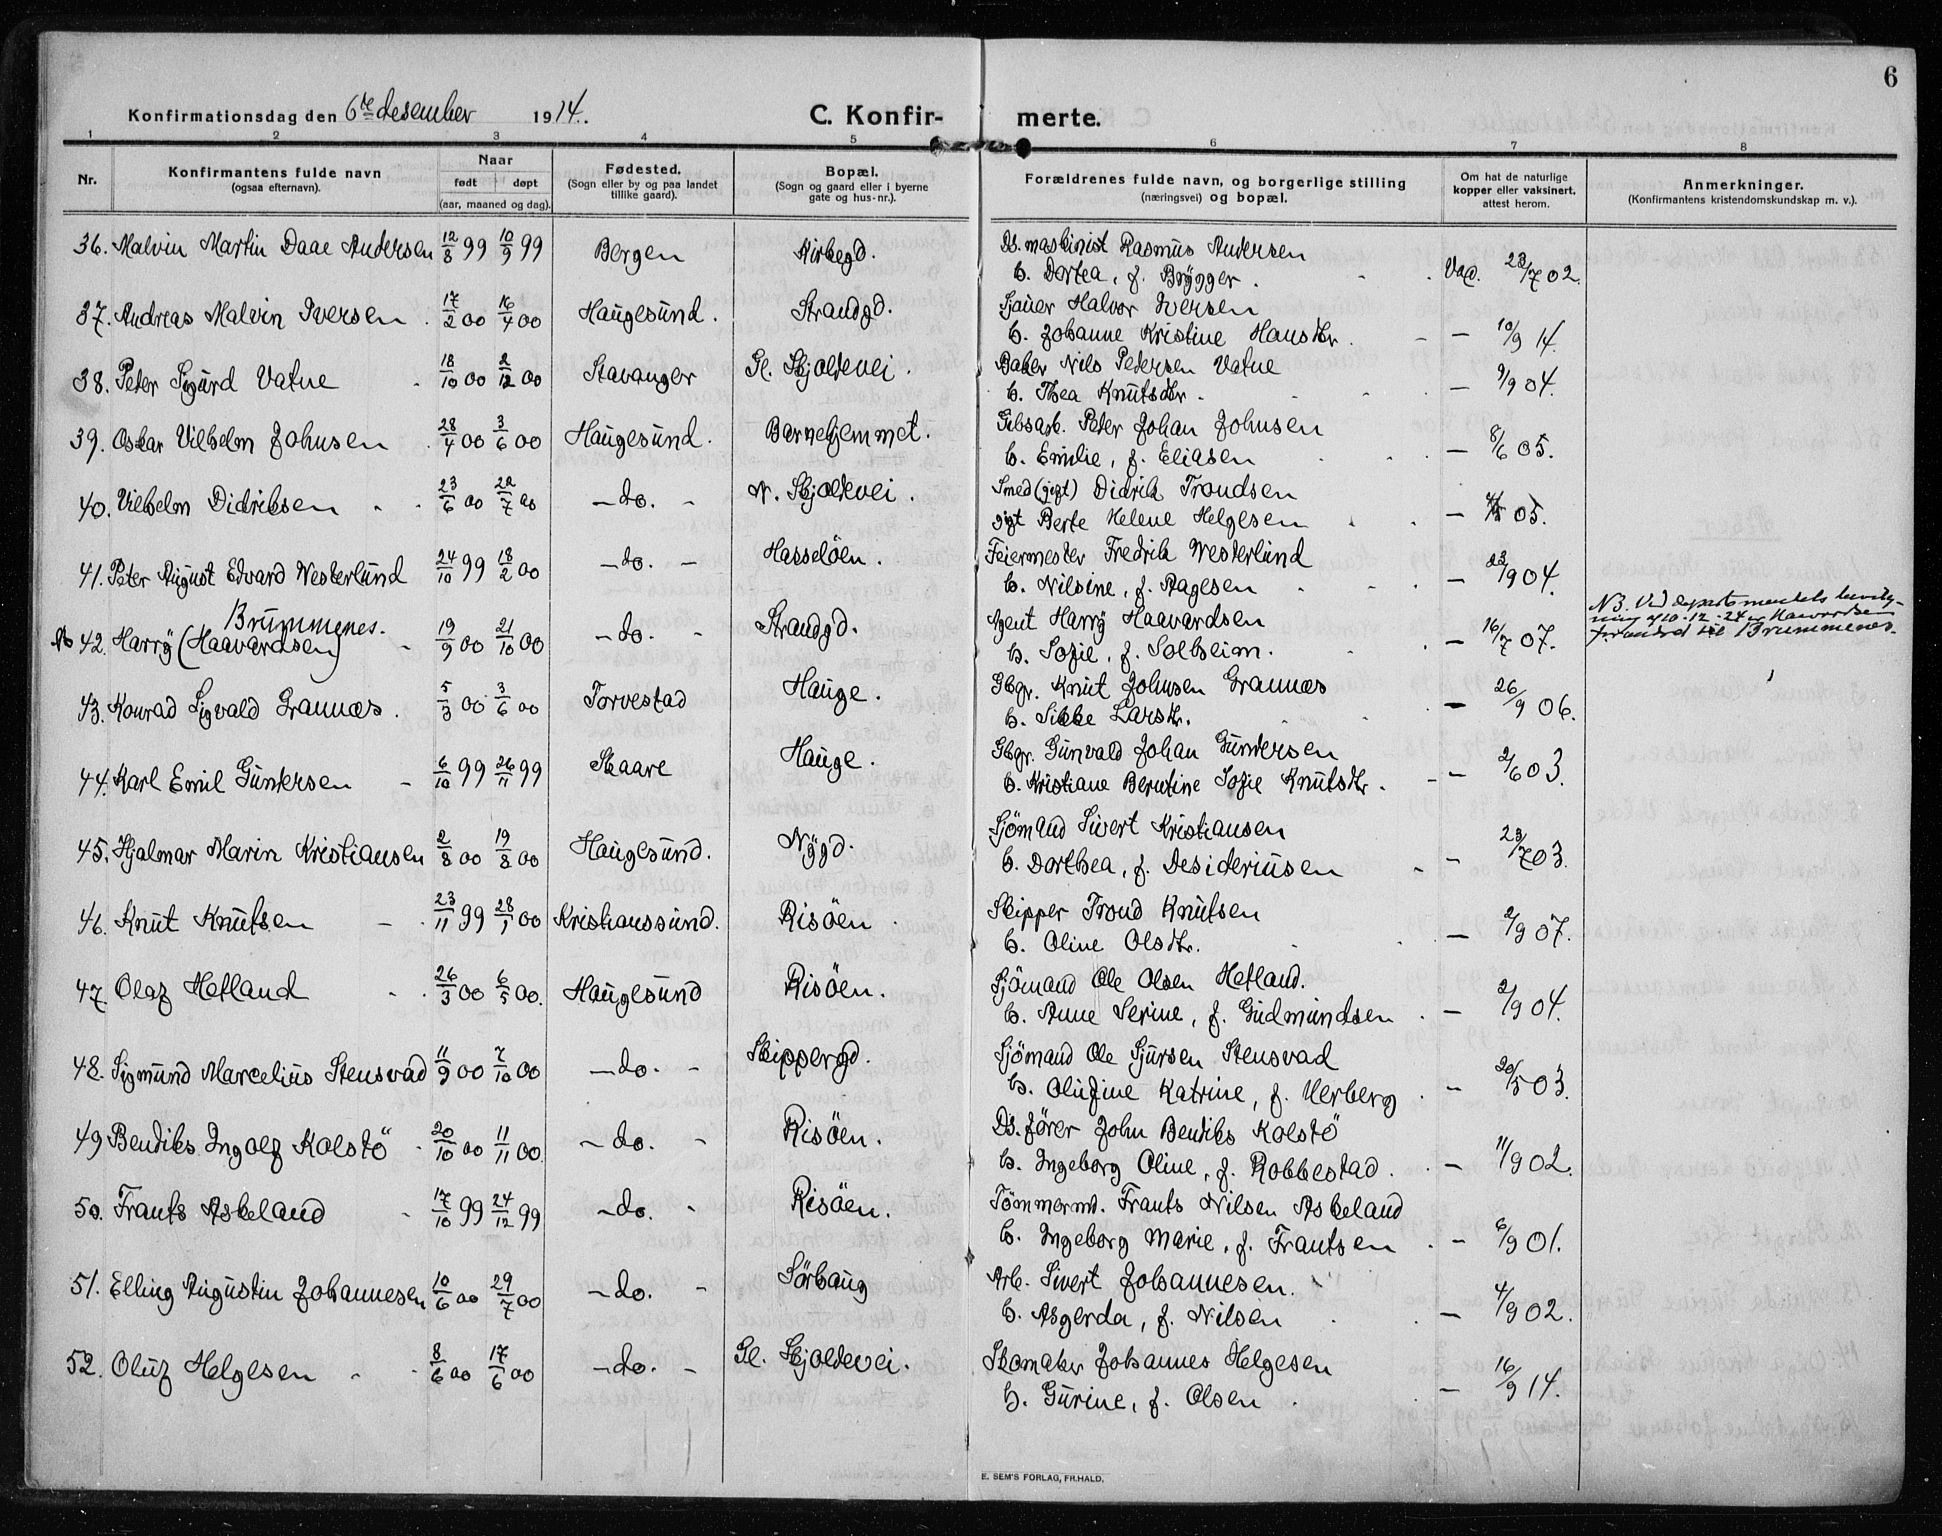 6
Konfirmationsdag den 6te desember 1914. C. Konfirmerte.
1 2 3 4 5 6 7 8
Nr. Konfirmantens fulde navn (ogsaa efternavn). Naar født døpt (aar, maaned og dag). Fødested. (Sogn eller by og paa landet tillike gaard). Bopæl. (Sogn og gaard eller i byerne gate og hus-nr.). Forældrenes fulde navn, og borgerlige stilling (næringsvei) og bopæl. Om hat de naturlige kopper eller vaksinert. attest herom. Anmerkninger. (Konfirmantens kristendomskundskap m. v.).
36. Malvin Martin Daae Andersen 12/8 99 10/9 99 Bergen Kirkegd. Ds. maskinist Rasmus Andersen
h. Dortea, f. Brygger. Vac. 23/7 02.
37. Andreas Malvin Iversen 17/2 00 16/4 00 Haugesund. Strandgd. Sjauer Halvor Iversen
h. Johanne Kristine Hansdtr. - 10/9 14.
38. Peter Sigurd Vatne 18/10 00 2/12 00 Stavanger Gl. Skjoldevei. Baker Nils Petersen Vatne
h. Thea Knutsdtr. - 9/9 04.
39. Oskar Vilhelm Johnsen 28/4 00 3/6 00 Haugesund. Barnehjemmet. Gibsarb. Peter Johan Johnsen
h. Emilie, f. Eliasen - 8/6 05.
40. Vilhelm Didriksen 23/6 00 22/7 00 - do. - N. Skjoldevei. Smed (gift) Didrik Trondsen
gift Berte Helene Helgesen - 05.
41. Peter August Edvard Westerlund 24/10 99 18/2 00 - do. - Hasseløen. Feiermester Fredrik Westerlund
h. Nilsine, f. Aagesen - 23/9 04.
Brummenes.
Nb 42. Harry (Haavardsen) 19/9 00 21/10 00 - do. - Strandgd. Agent Harry Haavardsen
h. Sofie, f. Solheim. - 16/7 07. NB. Ved departementets bevilg-
ning af 10.12.24 Haavardsen
forandret til Brummenes.
43. Konrad Sigvald Grannæs. 5/3 00 3/6 00 Torvestad Hauge. Gbgr. Knut Johnsen Grannæs
h. Sikke Larsdtr. - 26/9 06.
44. Karl Emil Gundersen 6/10 99 26/11 99 Skaare Hauge. Gbgr. Gunvald Johan Gundersen
h. Kristiane Berntine Sofie Knutsdtr. - 2/6 03.
45. Hjalmar Marin Kristiansen 2/8 00 19/8 00 Haugesund. Nygd. Sjömand Sivert Kristiansen
h. Dorthea, f. Desideriusen - 23/7 03.
46. Knut Knutsen 23/11 99 28/1 00 Kristianssund. Risöen. Skipper Trond Knutsen
h. Oline Olsdtr. - 2/9 07.
47. Olaf Hetland 26/3 00 6/5 00. Haugesund Risöen. Sjömand Ole Olsen Hetland.
h. Anne Serine, f. Gudmundsen. - 2/9 04.
48. Sigmund Marcelius Stensvad 11/9 00 7/10 00 - do. - Skippergd. Sjömand Ole Sjursen Stensvad
h. Olufine Katrine, f. Verberg - 20/5 03.
49 Bendiks Ingolf Kolstö 20/10 00 11/11 00. - do. - Risöen. Ds. fører John Bendiks Kolstö
h. Ingeborg Oline, f. Robbestad. - 11/9 02.
50. Frants Askeland 17/10 99 24/12 99 - do. - Risöen. Tömmermd. Frants Nilsen Askeland
h. Ingeborg Marie, f. Frantsen - 6/9 01.
51. Elling Augustin Johannesen 10/6 00 29/7 00 - do. - Sörhaug Arb. Sivert Johannesen.
h. Asgerda, f. Nilsen - 4/9 02.
52. Oluf Helgesen 8/6 00 17/6 00 - do. - Gl. Skjoldevei. Skomaker Johannes Helgesen
h. Gurine, f. Olsen - 16/9 14.
E. SEM'S FORLAG, FR.HALD.